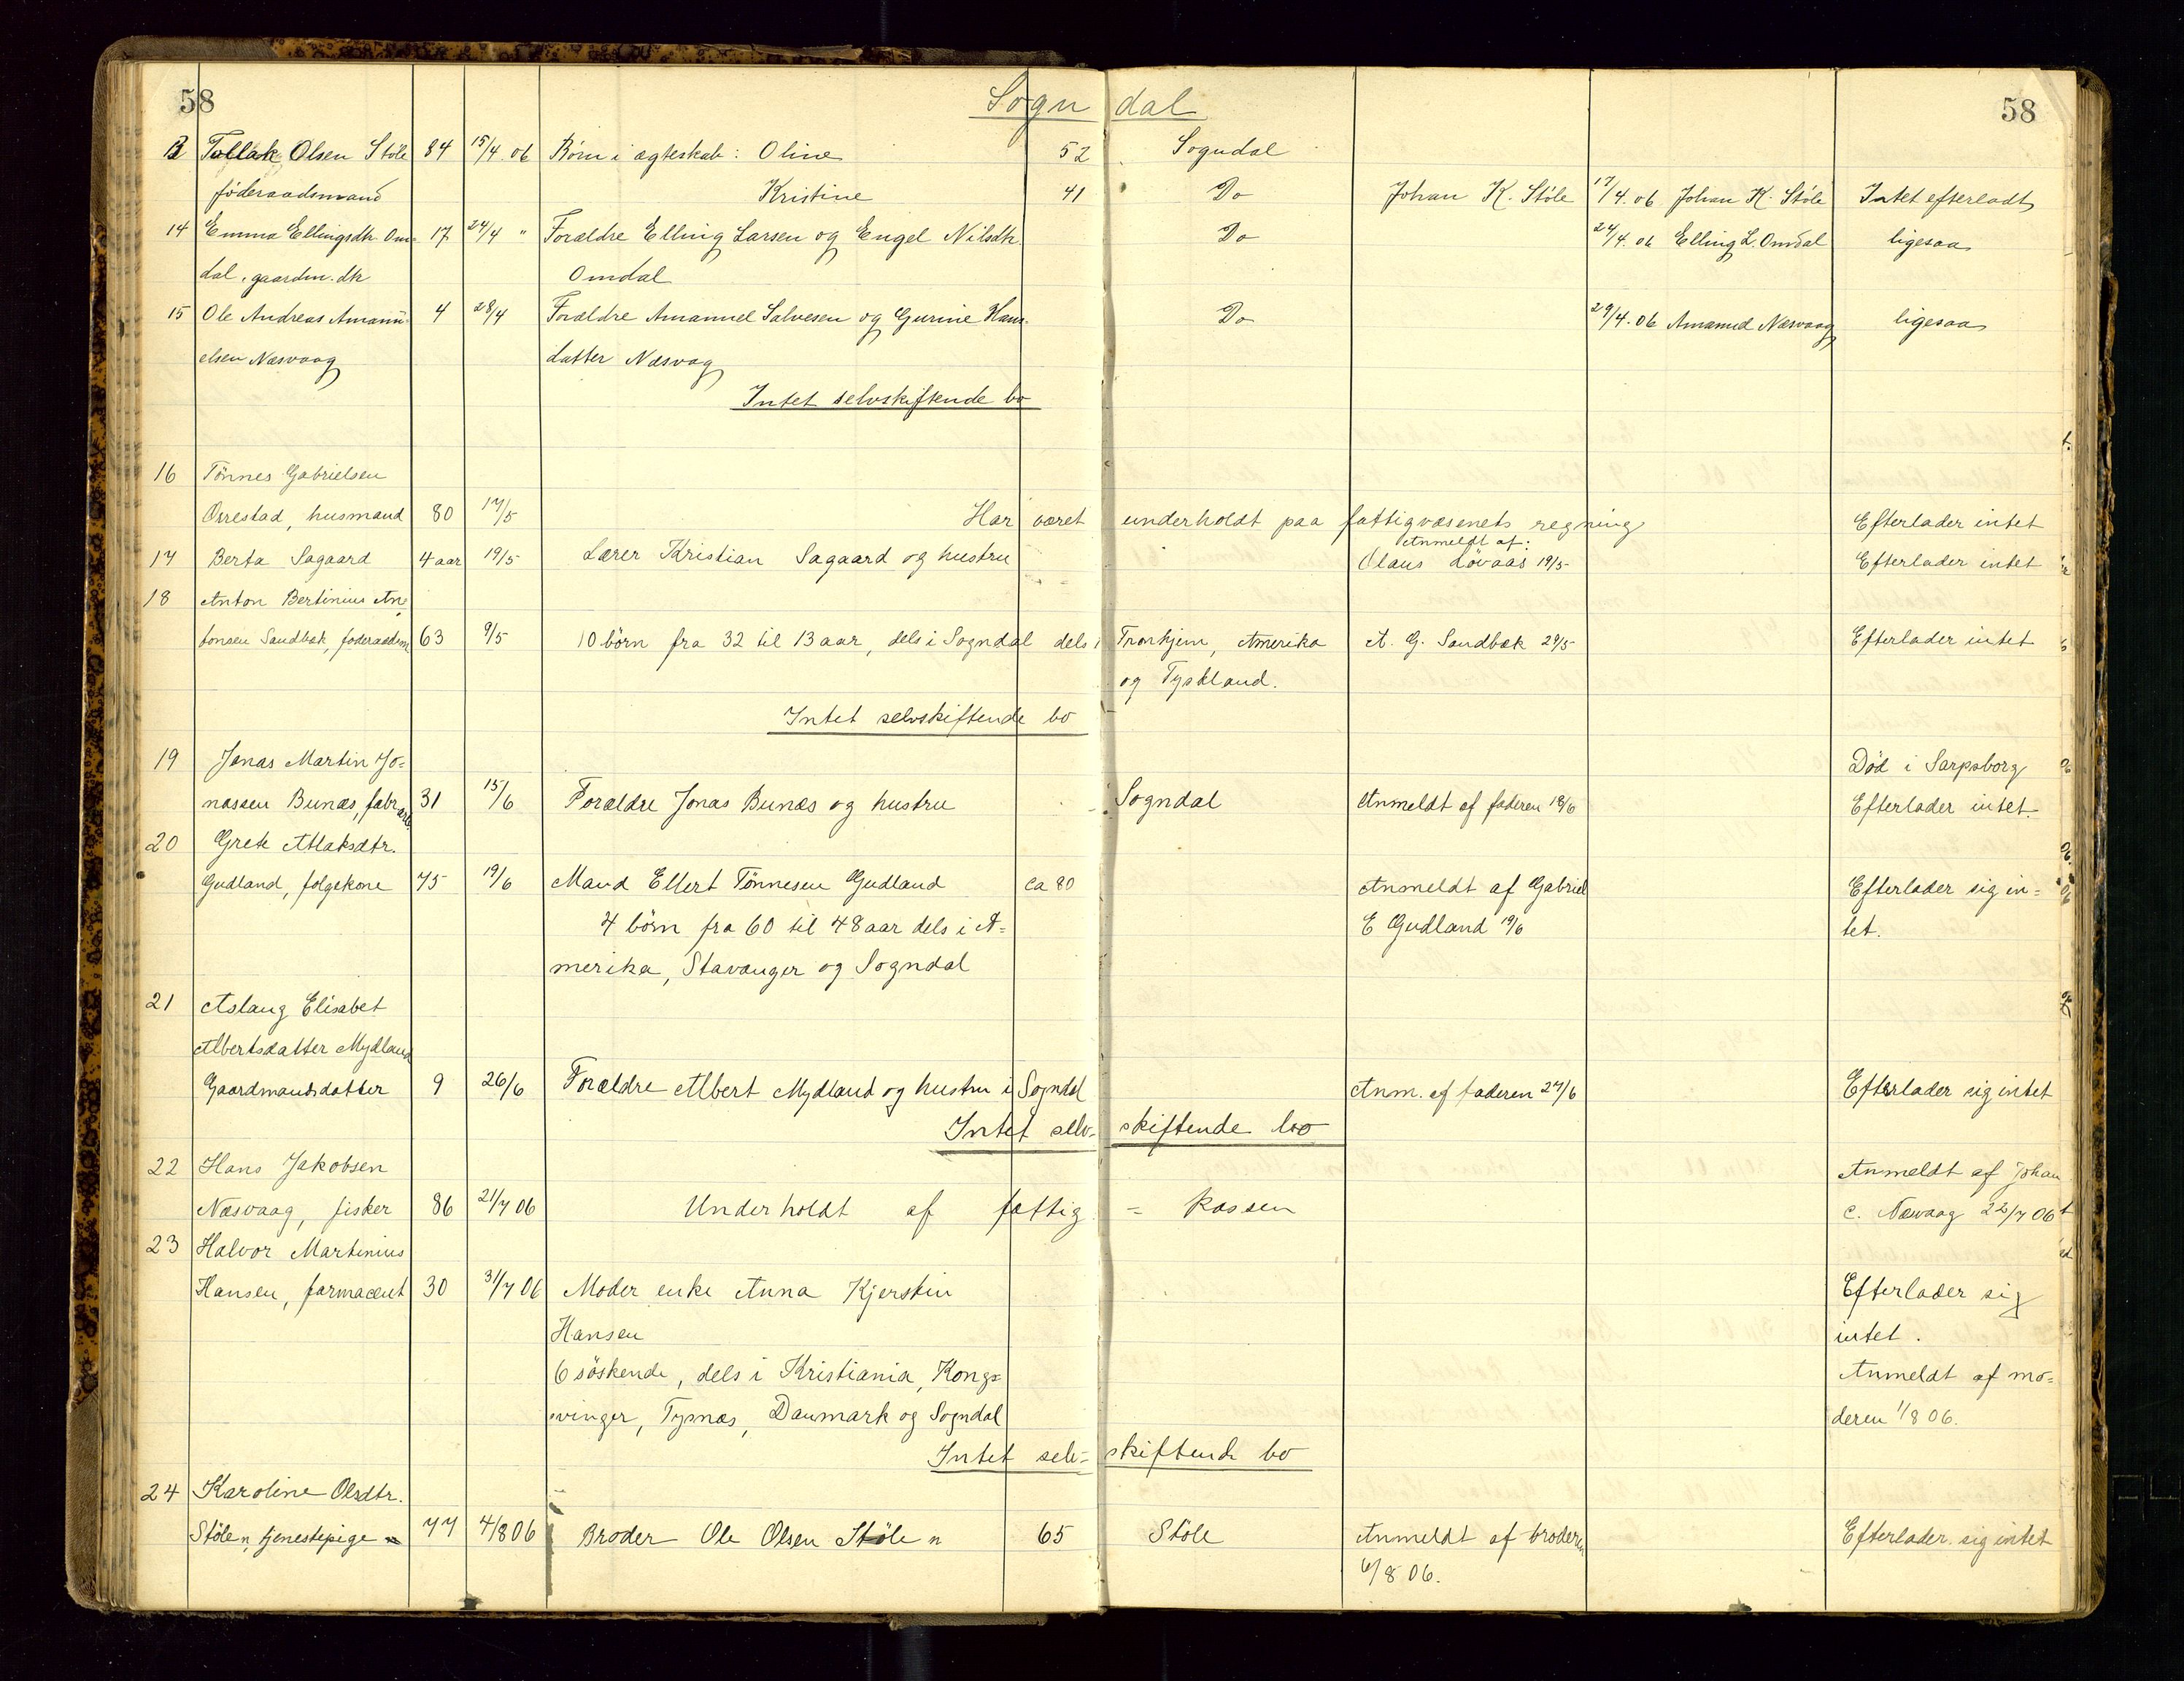 58 Sogndal 58
13 Tollak Olsen Stöle 84 15/4 06 Börn i ægteskab: Oline 52 Sogndal
föderaadsmand Kristine 41 Do Johan K. Stöle 17/4. 06 Johan K. Stöle Intet efterladt
14 Emma Ellingsdtr. Om- 17 24/4 " Forældre Elling Larsen og Engel Nilsdtr. Do 24/4. 06 Elling L. Omdal ligesaa
dal, gaardm. dtr Omdal
15 Ole Andreas Amanu- 4 28/4 Forældre Amanuel Salvesen og Gurine Hans- Do 29/4. 06 Amanuel Næsvaag ligesaa
elsen Næsvaag datter Næsvag
Intet selvskiftende bo
16 Tönnes Gabrielsen
Orrestad, husmand 80 17/5 Har været underholdt paa fattigvæsenets regning Efterlader intet
Anmeldt af:
17 Berta Sagaard 4 aar 19/5 Lærer Kristian Sagaard og hustru Olaus Lövaas 19/5 Efterlader intet
18 Anton Bertinius An-
tonsen Sandbæk, föderaadsm 63 9/5 10 börn fra 32 til 13 aar, dels i Sogndal dels i Tronhjem, Amerika A. G. Sandbæk 29/5 Efterlader intet
og Tyskland.
Intet selvskiftende bo
19 Jonas Martin Jo- Död i Sarpsborg
nassen Bunæs, fabr.arb. 31 15/6 Forældre Jonas Bunæs og hustru Sogndal Anmeldt af faderen 18/6 Efterlader intet.
20 Grete Atlaksdtr.
Gudland, følgekone 75 19/6 Mand Ellert Tönnesen Gudland ca 80 Anmeldt af Gabriel Efterlader sig in-
4 börn fra 60 til 48 aar dels i A- E Gudland 19/6 tet.
merika, Stavanger og Sogndal
21 Aslaug Elisabet
Albertsdatter Mydland
Gaardmandsdatter 9 26/6 Forældre Albert Mydland og hustru i Sogndal Anm. af faderen 27/6 Efterlader sig intet
Intet selv- skiftende bo
22 Hans Jakobsen Anmeldt af Johan
Næsvaag, fisker 86 21/7 06 Underholdt af fattig - kassen C. Næsvaag 22/7 06
23 Halvor Martinius
Hansen, farmaceut 30 31/7 06 Moder enke Anna Kjerstin Efterlader sig
Hansen intet.
6 söskende, dels i Kristiania, Kongs- Anmeldt af mo-
vinger, Tysnæs, Danmark og Sogndal deren 1/8 06.
Intet selv- skiftende bo
24 Karoline Olsdtr.
Stölen, tjenestepige 77 4/8 06 Broder Ole Olsen Stölen 65 Stöle Anmeldt af broderen Efterlader sig intet
6/8 06.